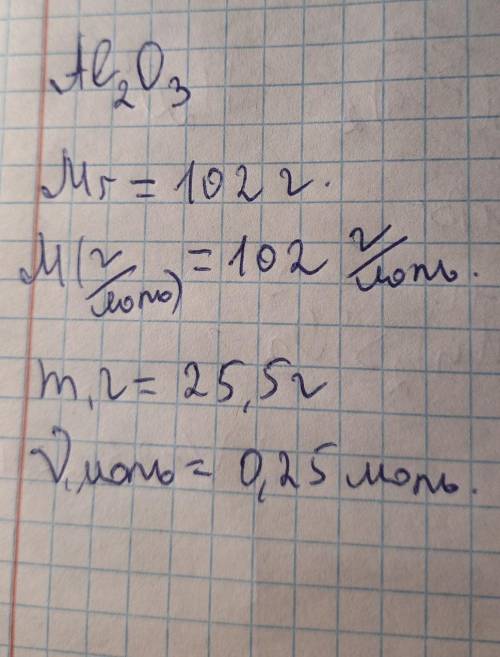 Al₂O₃
Mr = 102 г.
M(г/моль) = 102 г/моль.
m, г = 25,5 г
ν, моль = 0,25 моль.